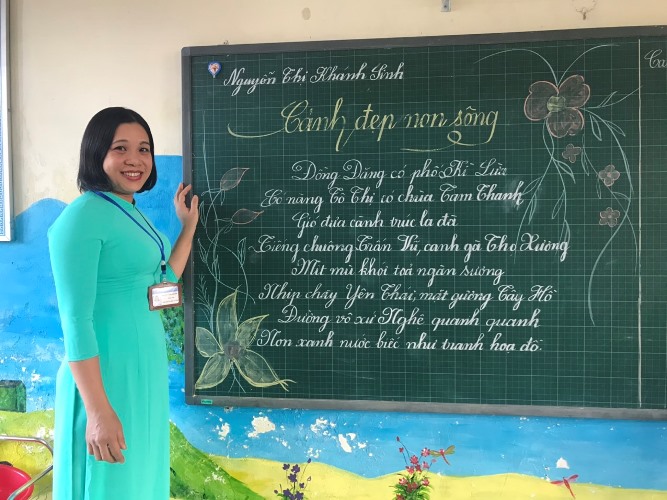 Nguyễn Thị Khánh Linh
Cảnh đẹp non sông
Đồng Đăng có phố Kì Lừa
Có nàng Tô Thị có chùa Tam Thanh
Gió đưa cành trúc la đà
Tiếng chuông Trấn Vũ, canh gà Thọ Xương
Mịt mù khói toả ngàn sương
Nhịp chày Yên Thái, mặt gương Tây Hồ
Đường vô xứ Nghệ quanh quanh
Non xanh nước biếc như tranh hoạ đồ.